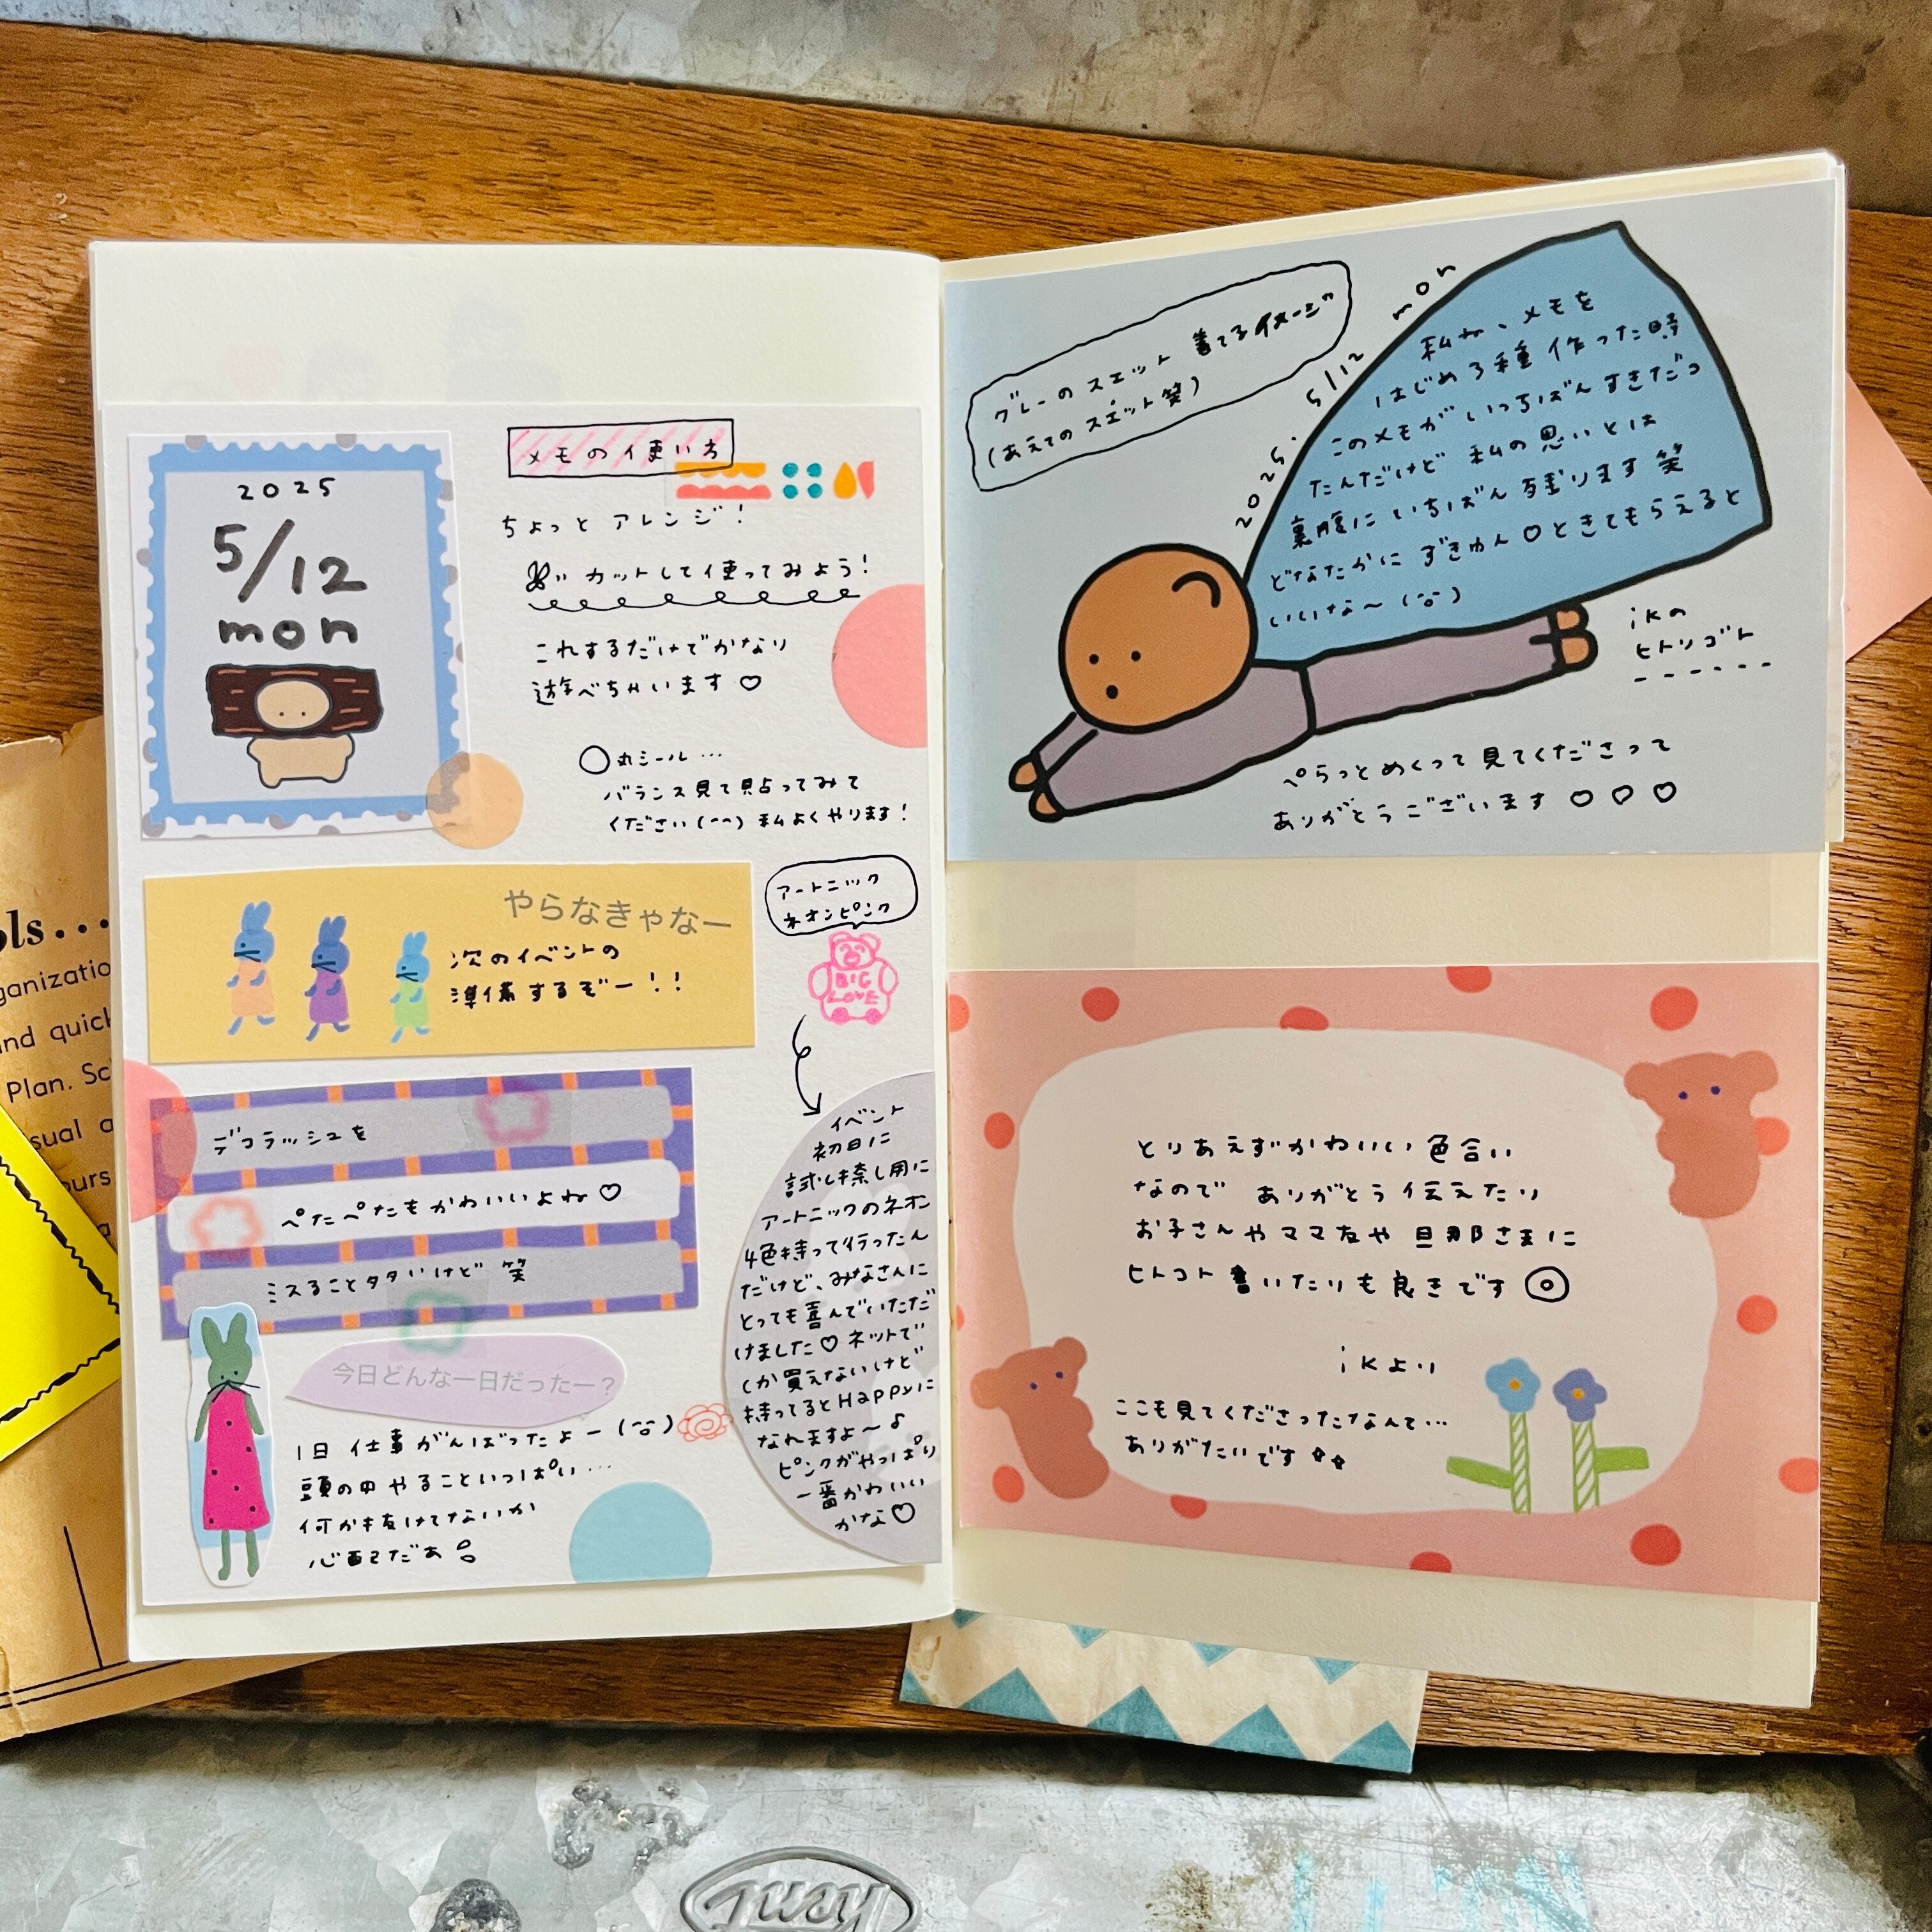 2025
5/12
mon
メモの使い方
ちょっとアレンジ!
カットして使ってみよう!
これするだけでかなり
遊べちゃいます♡
○丸シール…
バランス見て貼ってみて
ください(^^) 私よくやります!
やらなきゃなー
次のイベントの
準備するぞー!!
アートニック
ネオンピンク
BIG
LOVE
デコラッシュを
ぺたぺたもかわいいよね♡
ミスること多いけど 笑
今日どんな一日だったー?
1日 仕事がんばったよー
頭の中やることいっぱい…
何か抜けてないか
心配だあ
イベント
初日に
試し捺し用に
アートニックのネオン
4色持って行ったん
だけど、みなさんに
とっても喜んでいただ
けました♡ネットで
しか買えないけど
持ってるとHappyに
なれますよ〜♪
ピンクがやっぱり
一番かわいい
かな♡
グレーのスエット 着てるイメージ
(あえてのスエット笑)
2025. 5/12 mon
私ね、メモを
はじめ3種作った時
このメモがいっちばんすきだっ
たんだけど 私の思いとは
裏腹にいちばん残ります笑
どなたかに ずきゅん♡ときてもらえると
いいな〜
ikの
ヒトリゴト
ぺらっとめくって見てくださって
ありがとうございます♡♡♡
とりあえずかわいい色合い
なので ありがとう伝えたり
お子さんやママ友や旦那さまに
ヒトコト書いたりも良きです
ikより
ここも見てくださったなんて…
ありがたいです
ols...
ganizatio
nd quick
Plan. Sc
sual a
ours